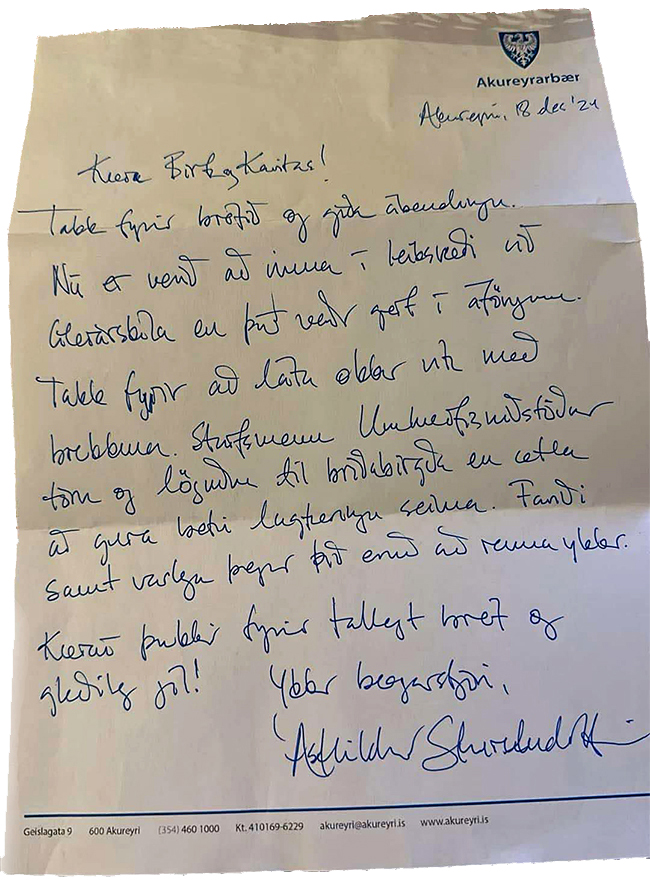 Akureyrarbær
Akureyri, 18 des '24
Kæra Birta og Karítas!
Takk fyrir bréfið og góða ábendingu.
Nú er verið að vinna í leiksvæði við
Glerárskóla en það verðr gert í áföngum.
Takk fyrir að láta okkur vita með
brekkuna. Starfsmenn Umhverfismiðstöðvar
fóru og löguðu til bráðabirgða en ætla
að gera betri lagfæringu seinna. Farið
samt varlega þegar þið eruð að renna ykkur.
Kærar þakkir fyrir fallegt bréf og
gleðileg jól! Ykkar bæjarstjóri,
Ásthildur Sturludóttir
Geislagata 9 600 Akureyri (354) 460 1000 Kt. 410169-6229 akureyri@akureyri.is www.akureyri.is